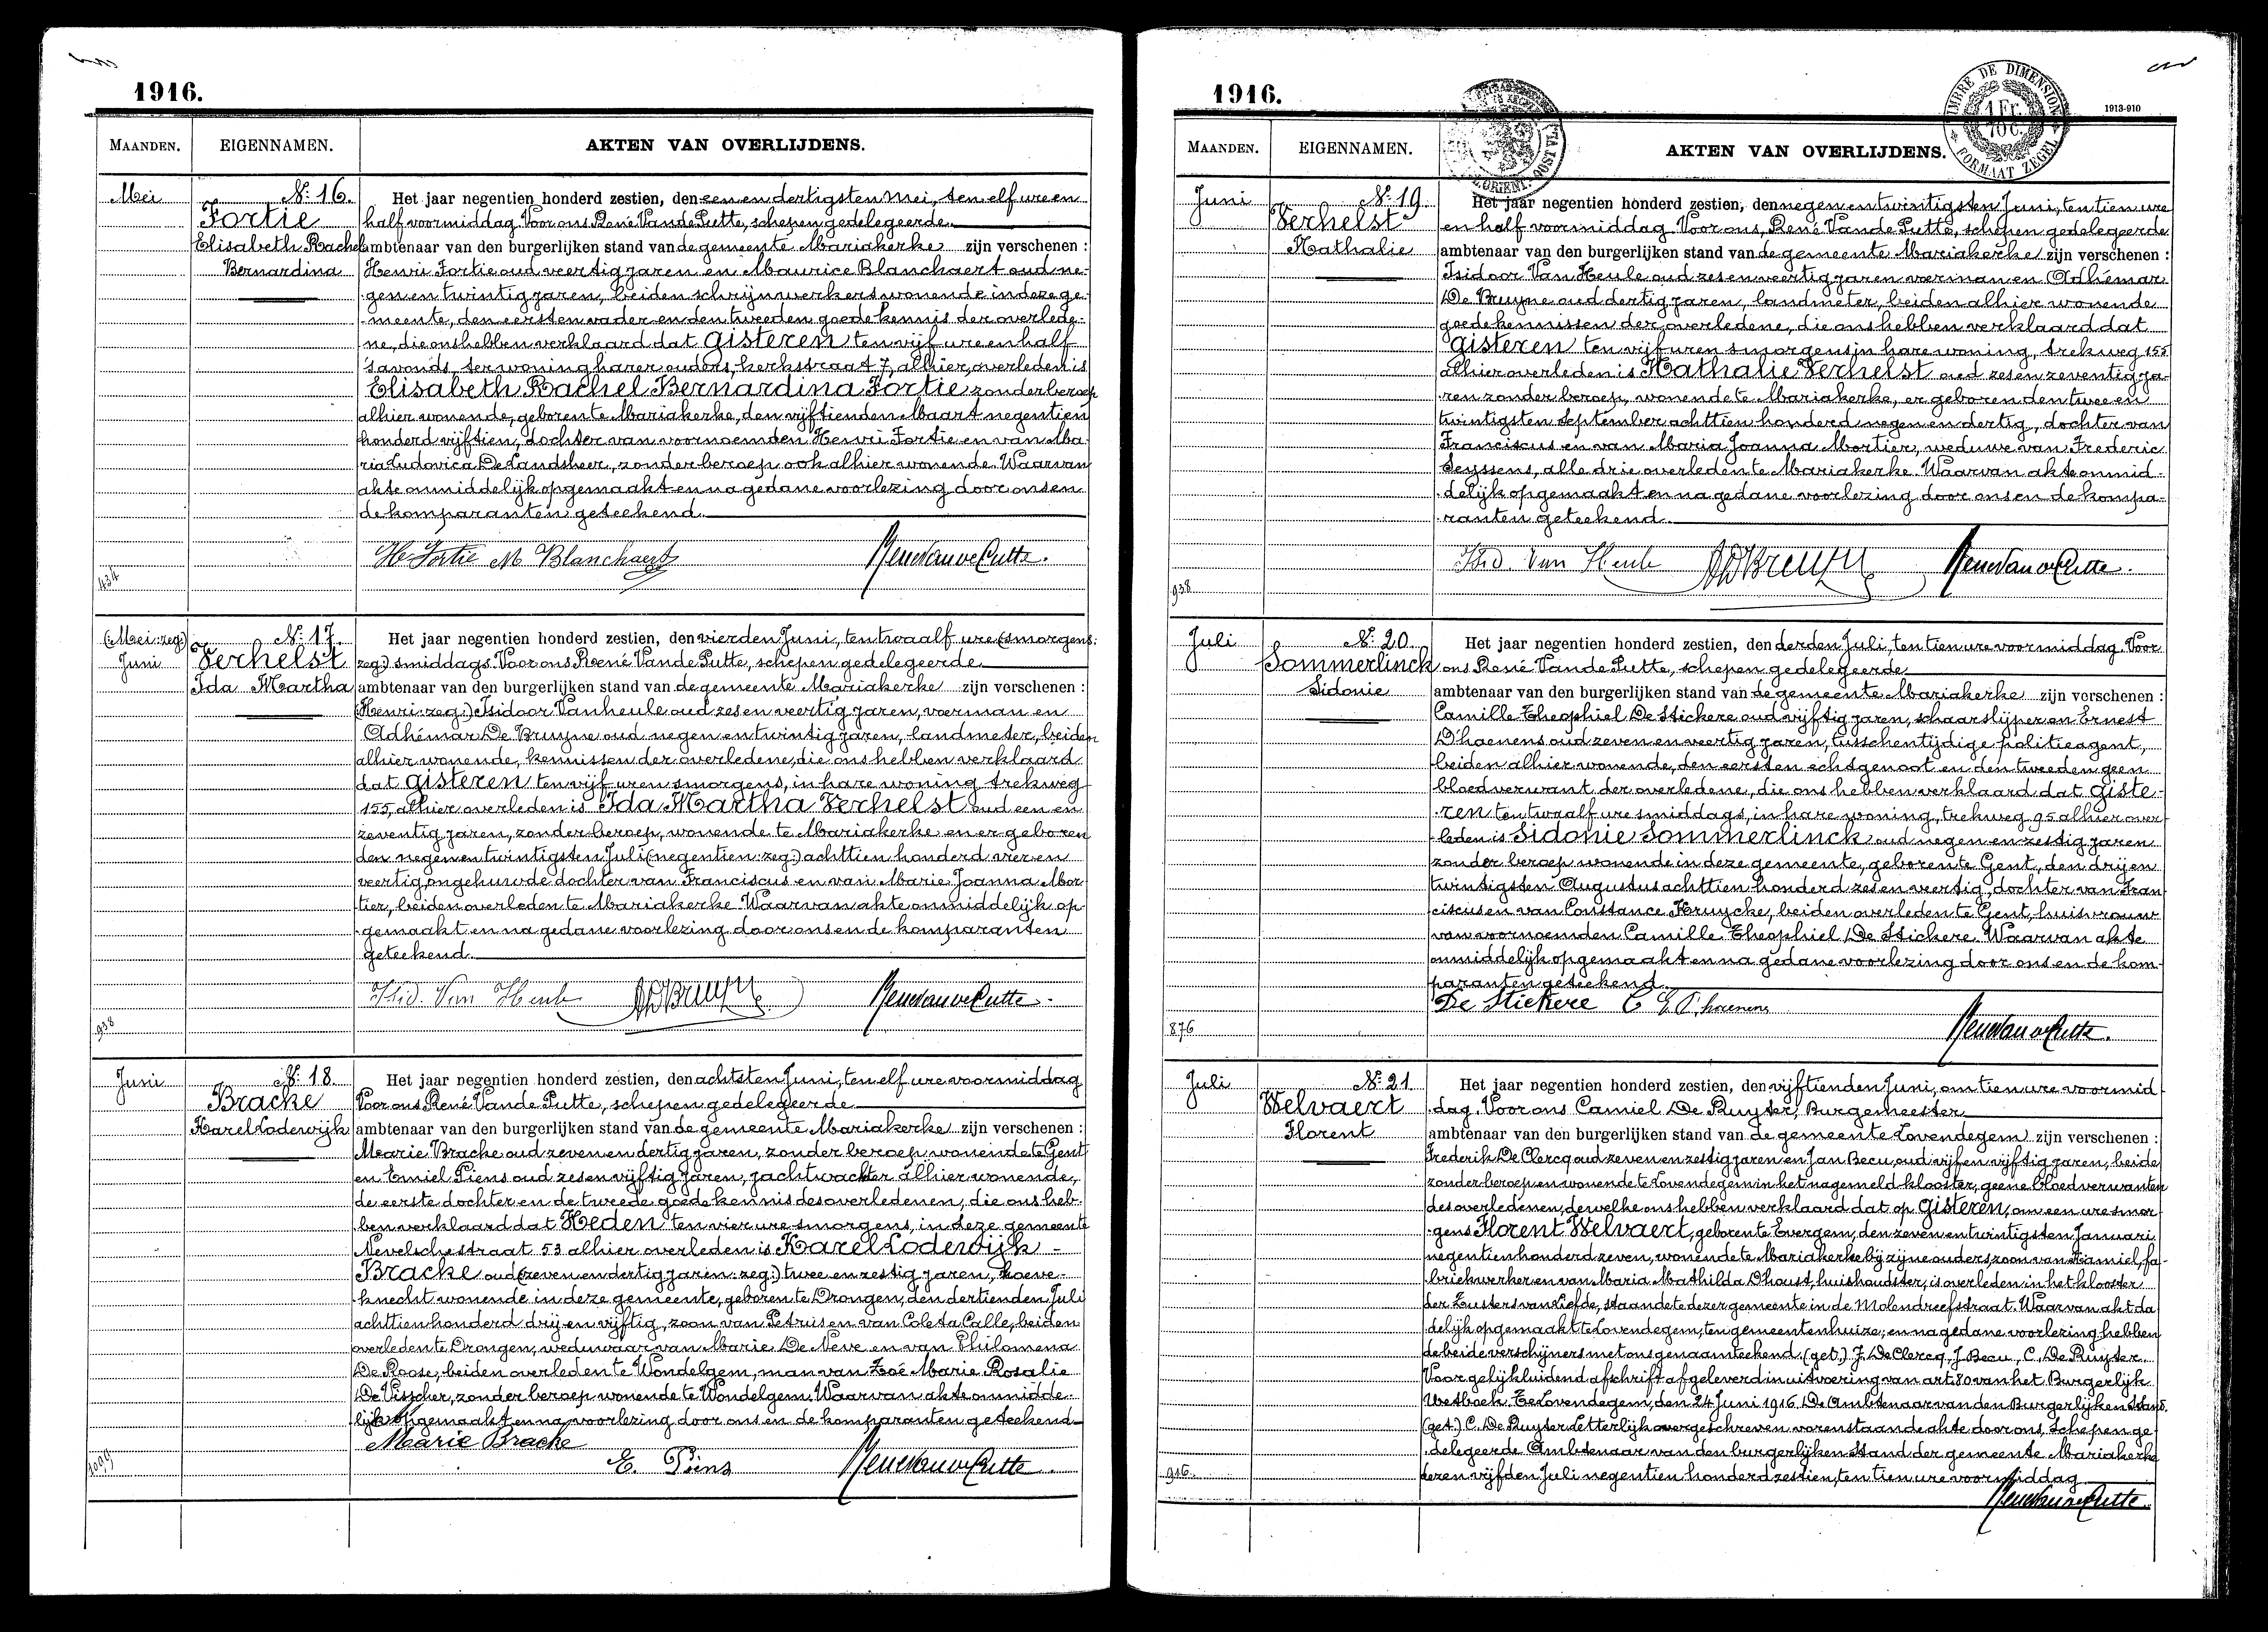 1916.
MAANDEN.
EIGENNAMEN.
AKTEN VAN OVERLIJDENS.
Mei
N: 16.
Fortie
Elisabeth Rachel
Bernardina
Het jaar negentien honderd zestien, den een en dertigsten Mei, ten elf ure en
half voormiddag Voor ons René Vande Putte, schepen gedelegeerde
ambtenaar van den burgerlijken stand van de gemeente Mariakerke zijn verschenen :
Henri Fortie oud veertig jaren en Maurice Blanchaert oud ne-
gen en twintig jaren, beiden schrijnwerkers wonende in deze ge-
meente, den eersten vader en den tweeden goede kennis der overlede-
ne, die ons hebben verklaard dat gisteren ten vijf ure en half
's avonds, ter woning harer ouders, kerkstraat 7, alhier, overleden is
Elisabeth Rachel Bernardina Fortie zonder beroep
alhier wonende, geboren te Mariakerke, den vijftienden Maart negentien
honderd vijftien, dochter van voornoemden Henri Fortie en van Ma-
ria Ludovica De Landsheer, zonder beroep ook alhier wonende. Waarvan
akte onmiddelijk opgemaakt en na gedane voorlezing door ons en
de komparanten geteekend.
H Fortie M Blanchaert
434
(Mei: zeg:)
Juni
N: 17.
Verhelst
Ida Martha
Het jaar negentien honderd zestien, den vierden Juni, ten twaalf ure (smorgens:
zeg:) smiddags. Voor ons René Vande Putte, schepen gedelegeerde
ambtenaar van den burgerlijken stand van de gemeente Mariakerke zijn verschenen :
(Henri: zeg:) Isidoor Vanheule oud zes en veertig jaren, voerman en
Adhémar De Bruyne oud negen en twintig jaren, landmeter, beiden
alhier wonende, kennissen der overledene, die ons hebben verklaard
dat gisteren ten vijf uren smorgens, in hare woning trekweg
155, alhier overleden is Ida Martha Verhelst oud een en
zeventig jaren, zonder beroep, wonende te Mariakerke en er geboren
den negen en twintigsten Juli (negentien: zeg:) achttien honderd vier en
veertig, ongehuwde dochter van Franciscus en van Marie Joanna Mor
tier, beiden overleden te Mariakerke. Waarvan akte onmiddelijk op-
gemaakt en na gedane voorlezing door ons en de komparanten
geteekend.
Isid. Van Heule
938
Juni
N: 18.
Bracke
Karel Lodewijk
Het jaar negentien honderd zestien, den achtsten Juni, ten elf ure voormiddag
Voor ons René Vande Putte, schepen gedelegeerde
ambtenaar van den burgerlijken stand van de gemeente Mariakerke zijn verschenen :
Marie Bracke oud zeven en dertig jaren, zonder beroep wonende te Gent
en Emiel Piens oud zes en vijftig jaren, jachtwachter alhier wonende,
de eerste dochter en de tweede goede kennis des overledenen, die ons heb-
ben verklaard dat Heden ten vier ure smorgens, in deze gemeente
Nevelschestraat 53 alhier overleden is Karel Lodewijk -
Bracke oud (zeven en dertig jaren: zeg:) twee en zestig jaren, hoeve-
knecht wonende in deze gemeente, geboren te Drongen, den dertienden Juli
achttien honderd drij en vijftig, zoon van Petrus en van Coleta Calle, beiden
overleden te Drongen, weduwaar van Marie De Neve en van Philomena
De Roose, beiden overleden te Wondelgem, man van Zoé Marie Rosalie
De Visscher, zonder beroep wonende te Wondelgem. Waarvan akte onmidde-
lijk opgemaakt en na voorlezing door ons en de komparanten geteekend
Marie Bracke
E. Piens
1009
1916.
TIMBRE DE DIMENSION
1 Fr.
10 C.
FORMAAT ZEGEL
1913-910
MAANDEN.
EIGENNAMEN.
AKTEN VAN OVERLIJDENS.
Juni
N: 19
Verhelst
Nathalie
Het jaar negentien honderd zestien, den negen en twintigsten Juni, ten tien ure
en half voormiddag Voor ons, René Vande Putte, schepen gedelegeerde
ambtenaar van den burgerlijken stand van de gemeente Mariakerke zijn verschenen :
Isidoor Van Heule oud zes en veertig jaren voerman en Adhémar
De Bruyne oud dertig jaren, landmeter, beiden alhier wonende
goede kennissen der overledene, die ons hebben verklaard dat
gisteren ten vijf uren smorgens in hare woning, trekweg 155
alhier overleden is Nathalie Verhelst oud zes en zeventig ja-
ren zonder beroep, wonende te Mariakerke, er geboren den twee en
twintigsten September achttien honderd negen en dertig, dochter van
Franciscus en van Maria Joanna Mortier, weduwe van Frederic
Seyssens, alle drie overleden te Mariakerke. Waarvan akte onmid-
delijk opgemaakt en na gedane voorlezing door ons en de kompa-
ranten geteekend.
Isid. Van Heule
938
Juli
N: 20.
Sommerlinck
Sidonie
Het jaar negentien honderd zestien, den derden Juli, ten tien ure voormiddag. Voor
ons René Vande Putte, schepen gedelegeerde
ambtenaar van den burgerlijken stand van de gemeente Mariakerke zijn verschenen :
Camille Theophiel De Stickere oud vijftig jaren, schaarslijper en Ernest
D'haenens oud zeven en veertig jaren, tusschentijdige politieagent,
beiden alhier wonende, den eersten echtgenoot en den tweeden geen
bloedverwant der overledene, die ons hebben verklaard dat giste-
ren ten twaalf ure smiddags, in hare woning, trekweg 95 alhier over-
leden is Sidonie Sommerlinck oud negen en zestig jaren
zonder beroep wonende in deze gemeente, geboren te Gent, den drij en
twintigsten Augustus achttien honderd zes en veertig, dochter van Fran
ciscus en van Constance Kruycke, beiden overleden te Gent, huisvrouw
van voornoemden Camille Theophiel De Stickere. Waarvan akte
onmiddelijk opgemaakt en na gedane voorlezing door ons en de kom-
paranten geteekend.
De Stickere C
876
Juli
N: 21
Welvaert
Florent
Het jaar negentien honderd zestien, den vijftienden Juni, om tien ure voormid
dag. Voor ons Camiel De Ruyter, Burgemeester
ambtenaar van den burgerlijken stand van de gemeente Lovendegem zijn verschenen :
Frederik De Clercq oud zeven en zestig jaren en Jan Becu, oud vijf en vijftig jaren, beide
zonder beroep en wonende te Lovendegem in het nagemeld klooster, geene bloedverwanten
des overledenen, dewelke ons hebben verklaard dat op gisteren, om een ure smor
gens Florent Welvaert, geboren te Evergem, den zeven en twintigsten Januari
negentien honderd zeven, wonende te Mariakerke bij zijne ouders, zoon van Kamiel, fa-
briekwerker en van Maria Mathilda Dhoust, huishoudster, is overleden in het klooster
der Zusters van Liefde, staande te dezer gemeente in de Molendreefstraat. Waarvan akt da
delijk opgemaakt te Lovendegem, ten gemeentenhuize; en na gedane voorlezing hebben
de beide verschijners met ons genaamteekend. (get.) F. De Clercq, J. Becu, C. De Ruyter.
Voor gelijkluidend afschrift afgeleverd in uitvoering van art. 80 van het Burgerlijk
Wetboek. Te Lovendegem, den 24 Juni 1916. De Ambtenaar van den Burgerlijken Stand.
(get.) C. De Ruyter. Letterlijk overgeschreven vorenstaande akte door ons, Schepen ge-
delegeerde Ambtenaar van den burgerlijken Stand der gemeente Mariakerke
dezen vijfden Juli negentien honderd zestien, ten tien ure voormiddag
916.